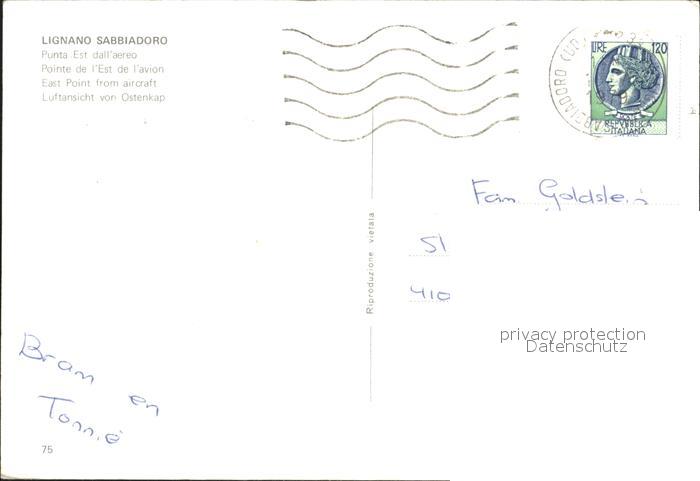 LIGNANO SABBIADORO
Punta Est dall'aereo
Pointe de l'Est de l'avion
East Point from aircraft
Luftansicht von Ostenkap
LIRE 120
REPVBBLICA
ITALIANA
Riproduzione vietata
Fam Goldstei
SI
410
privacy protection
Datenschutz
Bram en
Tonnie
75